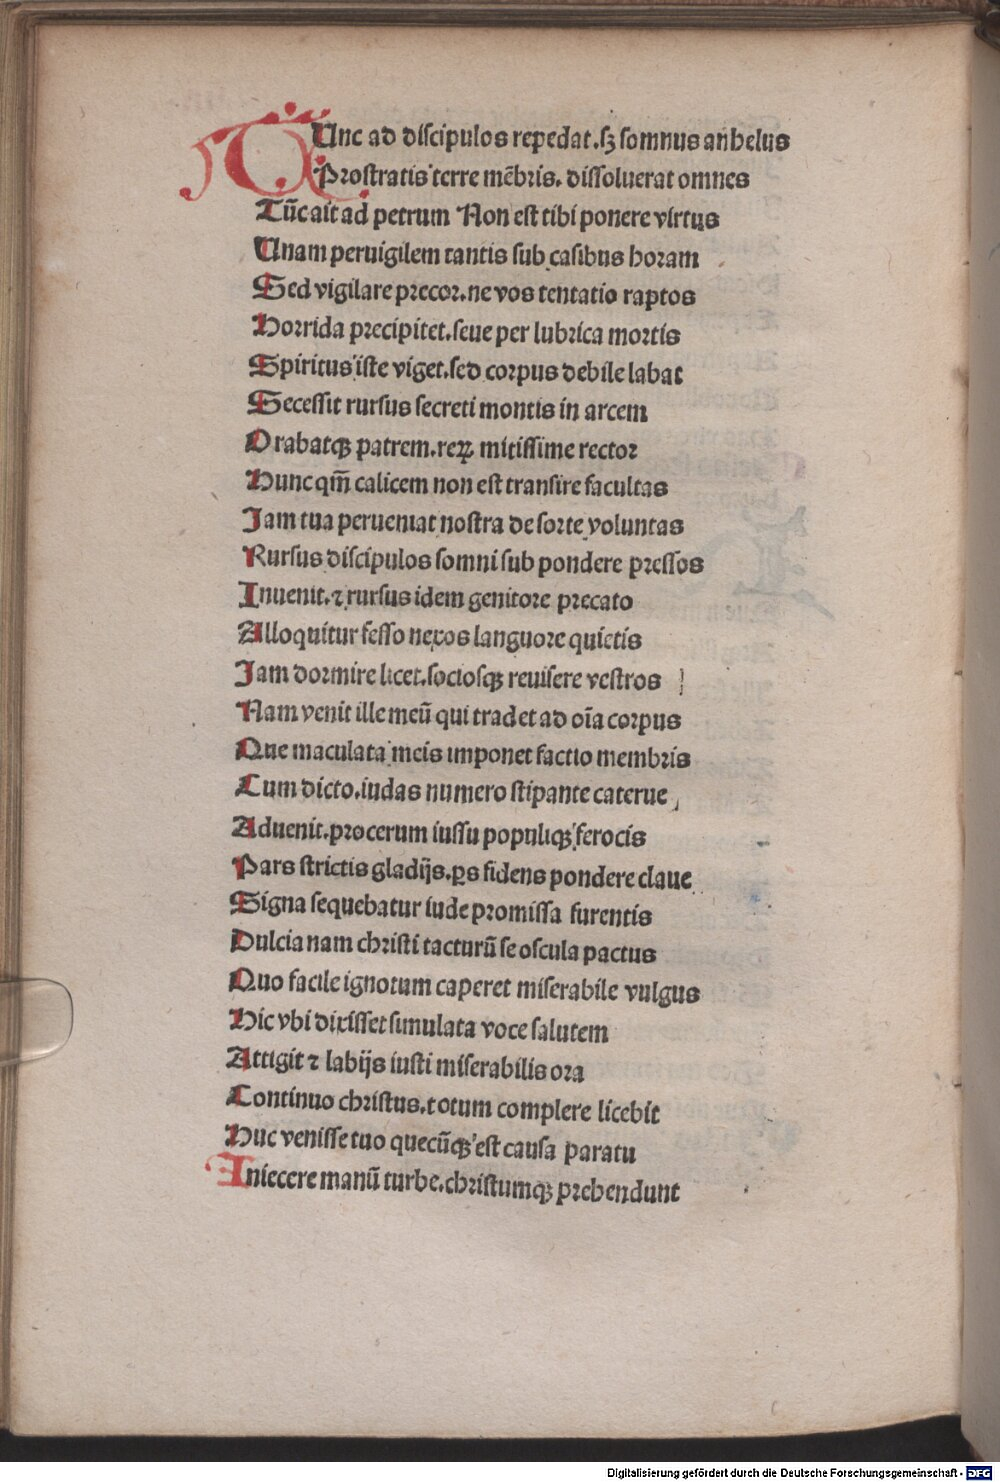 TUnc ad discipulos repedat. sꝫ somnus anhelus
Prostratis terre mēbris. dissoluerat omnes
Tūc ait ad petrum Non est tibi ponere virtus
Unam peruigilem tantis sub casibus horam
Sed vigilare precor. ne vos tentatio raptos
Horrida precipitet. seue per lubrica mortis
Spiritus iste viget. sed corpus debile labat
Secessit rursus secreti montis in arcem
Orabatqꝫ patrem. reꝝ mitissime rector
Hunc qm̄ calicem non est transire facultas
Iam tua perueniat nostra de sorte voluntas
Rursus discipulos somni sub pondere pressos
Inuenit. ⁊ rursus idem genitore precato
Alloquitur fesso nexos languore quietis
Iam dormire licet. sociosqꝫ reuisere vestros
Nam venit ille meū qui tradet ad oīa corpus
Que maculata meis imponet factio membris
Cum dicto. iudas numero stipante caterue
Aduenit. procerum iussu populiqꝫ ferocis
Pars strictis gladijs. ꝑs fidens pondere claue
Signa sequebatur iude promissa furentis
Dulcia nam christi tacturū se oscula pactus
Quo facile ignotum caperet miserabile vulgus
Hic vbi dixisset simulata voce salutem
Attigit ⁊ labijs iusti miserabilis ora
Continuo christus. totum complere licebit
Huc venisse tuo quecūqꝫ est causa paratu
Iniecere manū turbe. christumqꝫ prehendunt
Digitalisierung gefördert durch die Deutsche Forschungsgemeinschaft - DFG